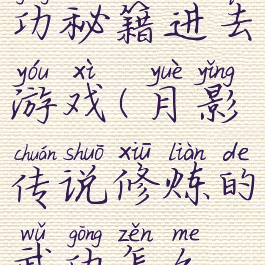 功秘籍进去
yóu xì yuè yǐng
游戏(月影
chuán shuō xiū liàn de
传说修炼的
wǔ gōng zěn me
武功怎么